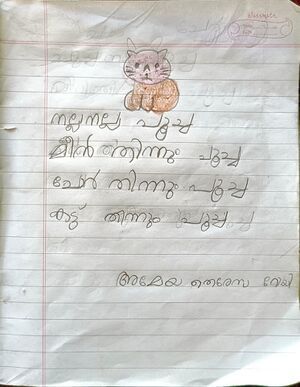 നല്ല നല്ല പൂച്ച
മീൻ തിന്നും പൂച്ച
തേൻ തിന്നും പൂച്ച
കട്ട് തിന്നും പൂച്ച
അമേയ തെരേസ